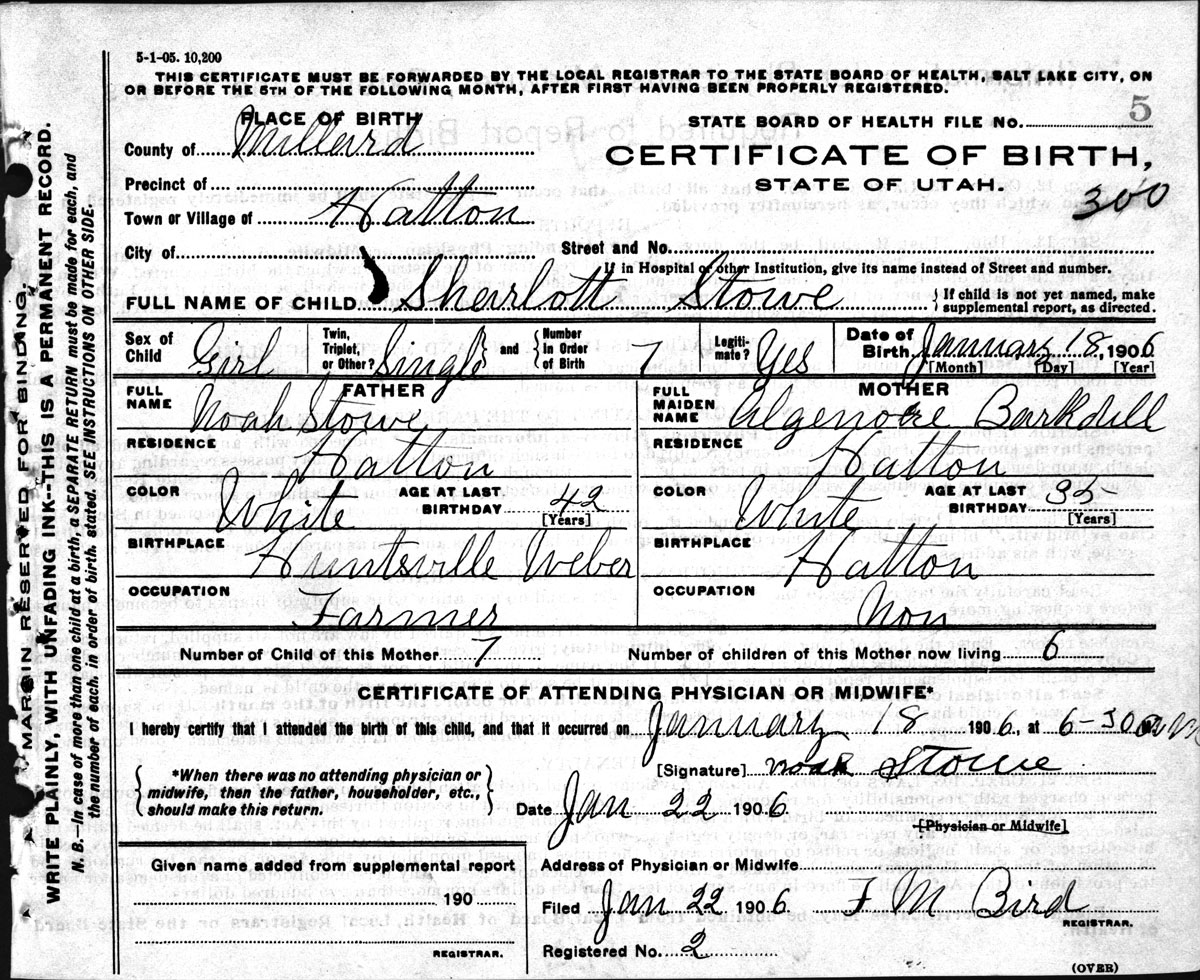 5-1-05. 10,200
THIS CERTIFICATE MUST BE FORWARDED BY THE LOCAL REGISTRAR TO THE STATE BOARD OF HEALTH, SALT LAKE CITY, ON
OR BEFORE THE 5TH OF THE FOLLOWING MONTH, AFTER FIRST HAVING BEEN PROPERLY REGISTERED.
PLACE OF BIRTH
STATE BOARD OF HEALTH FILE No. 5
County of Millard
CERTIFICATE OF BIRTH,
Precinct of
STATE OF UTAH.
300
Town or Village of Hatton
City of
Street and No.
If in Hospital or other Institution, give its name instead of Street and number.
FULL NAME OF CHILD Sherrlott Stowe
{If child is not yet named, make supplemental report, as directed.
Sex of Child Girl
Twin, Triplet, or Other? Single} and {Number in Order of Birth 7
Legitimate? Yes
Date of Birth January 18, 1906
[Month] [Day] [Year]
FATHER
FULL NAME Noah Stowe
RESIDENCE Hatton
COLOR White AGE AT LAST BIRTHDAY 42 [Years]
BIRTHPLACE Huntsville Weber
OCCUPATION Farmer
MOTHER
FULL MAIDEN NAME Algenore Barkdull
RESIDENCE Hatton
COLOR White AGE AT LAST BIRTHDAY 35 [Years]
BIRTHPLACE Hatton
OCCUPATION Non
Number of Child of this Mother 7 Number of children of this Mother now living 6
CERTIFICATE OF ATTENDING PHYSICIAN OR MIDWIFE*
I hereby certify that I attended the birth of this child, and that it occurred on January 18 1906, at 6-30 am
{*When there was no attending physician or midwife, then the father, householder, etc., should make this return.}
[Signature] Noah Stowe
Date Jan 22 1906
[Physician or Midwife]
Given name added from supplemental report
190
REGISTRAR.
Address of Physician or Midwife
Filed Jan 22 1906. F M Bird
REGISTRAR.
Registered No. 2
(OVER)
MARGIN RESERVED FOR BINDING.
WRITE PLAINLY, WITH UNFADING INK--THIS IS A PERMANENT RECORD.
N. B.--In case of more than one child at a birth, a SEPARATE RETURN must be made for each, and
the number of each, in order of birth, stated. SEE INSTRUCTIONS ON OTHER SIDE.